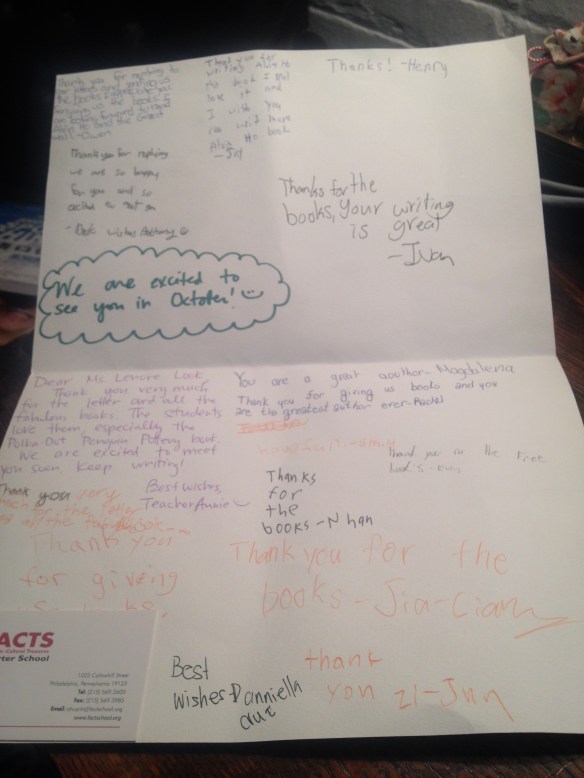 Thank you for replying to
our letters and sending us
the books
Thank you for
writing Alvin Ho
book I
love it and
I wish you
can write more
Alvin Ho book
Thanks! -Henry
Thank you for replying
we are so happy
for you and so
excited to
- Best wishes Anthony
Thanks for the
books, your writing
is great
-Ivan
We are excited to
see you in October!
Dear Ms Lenore Look,
Thank you very much
for the letter and all the
fabulous books. The students
love them, especially the
Polka Dot Penguin Pottery book.
We are excited to meet
you soon, Keep writing!
Best Wishes,
Teacher Annie
You are a great author- Magdalena
Thank you for giving us books and you
are the greatest author ever-Rachel
Thank you for the free
books
Thanks
for
the
books - Nhan
Thank you very
much for the letter
and all the
Thank you
for giving
Thank you for the
books - Jia-Ciam
thank
you zi-Jun
Best
Wishes Danniella
cruz
FACTS
Charter School
1023 Callowhill Street
Philadelphia, Pennsylvania 19123
Tel: (215) 569-2600
Fax: (215) 569-3985
www.factschool.org